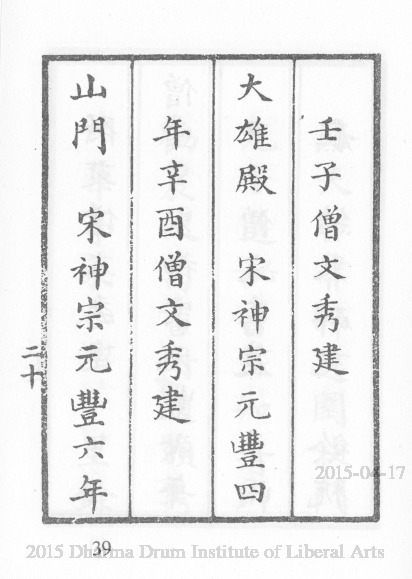 壬子僧文秀建
大雄殿　宋神宗元豐四
年辛酉僧文秀建
山門　宋神宗元豐六年
二十
39
2015-04-17
2015 Dharma Drum Institute of Liberal Arts